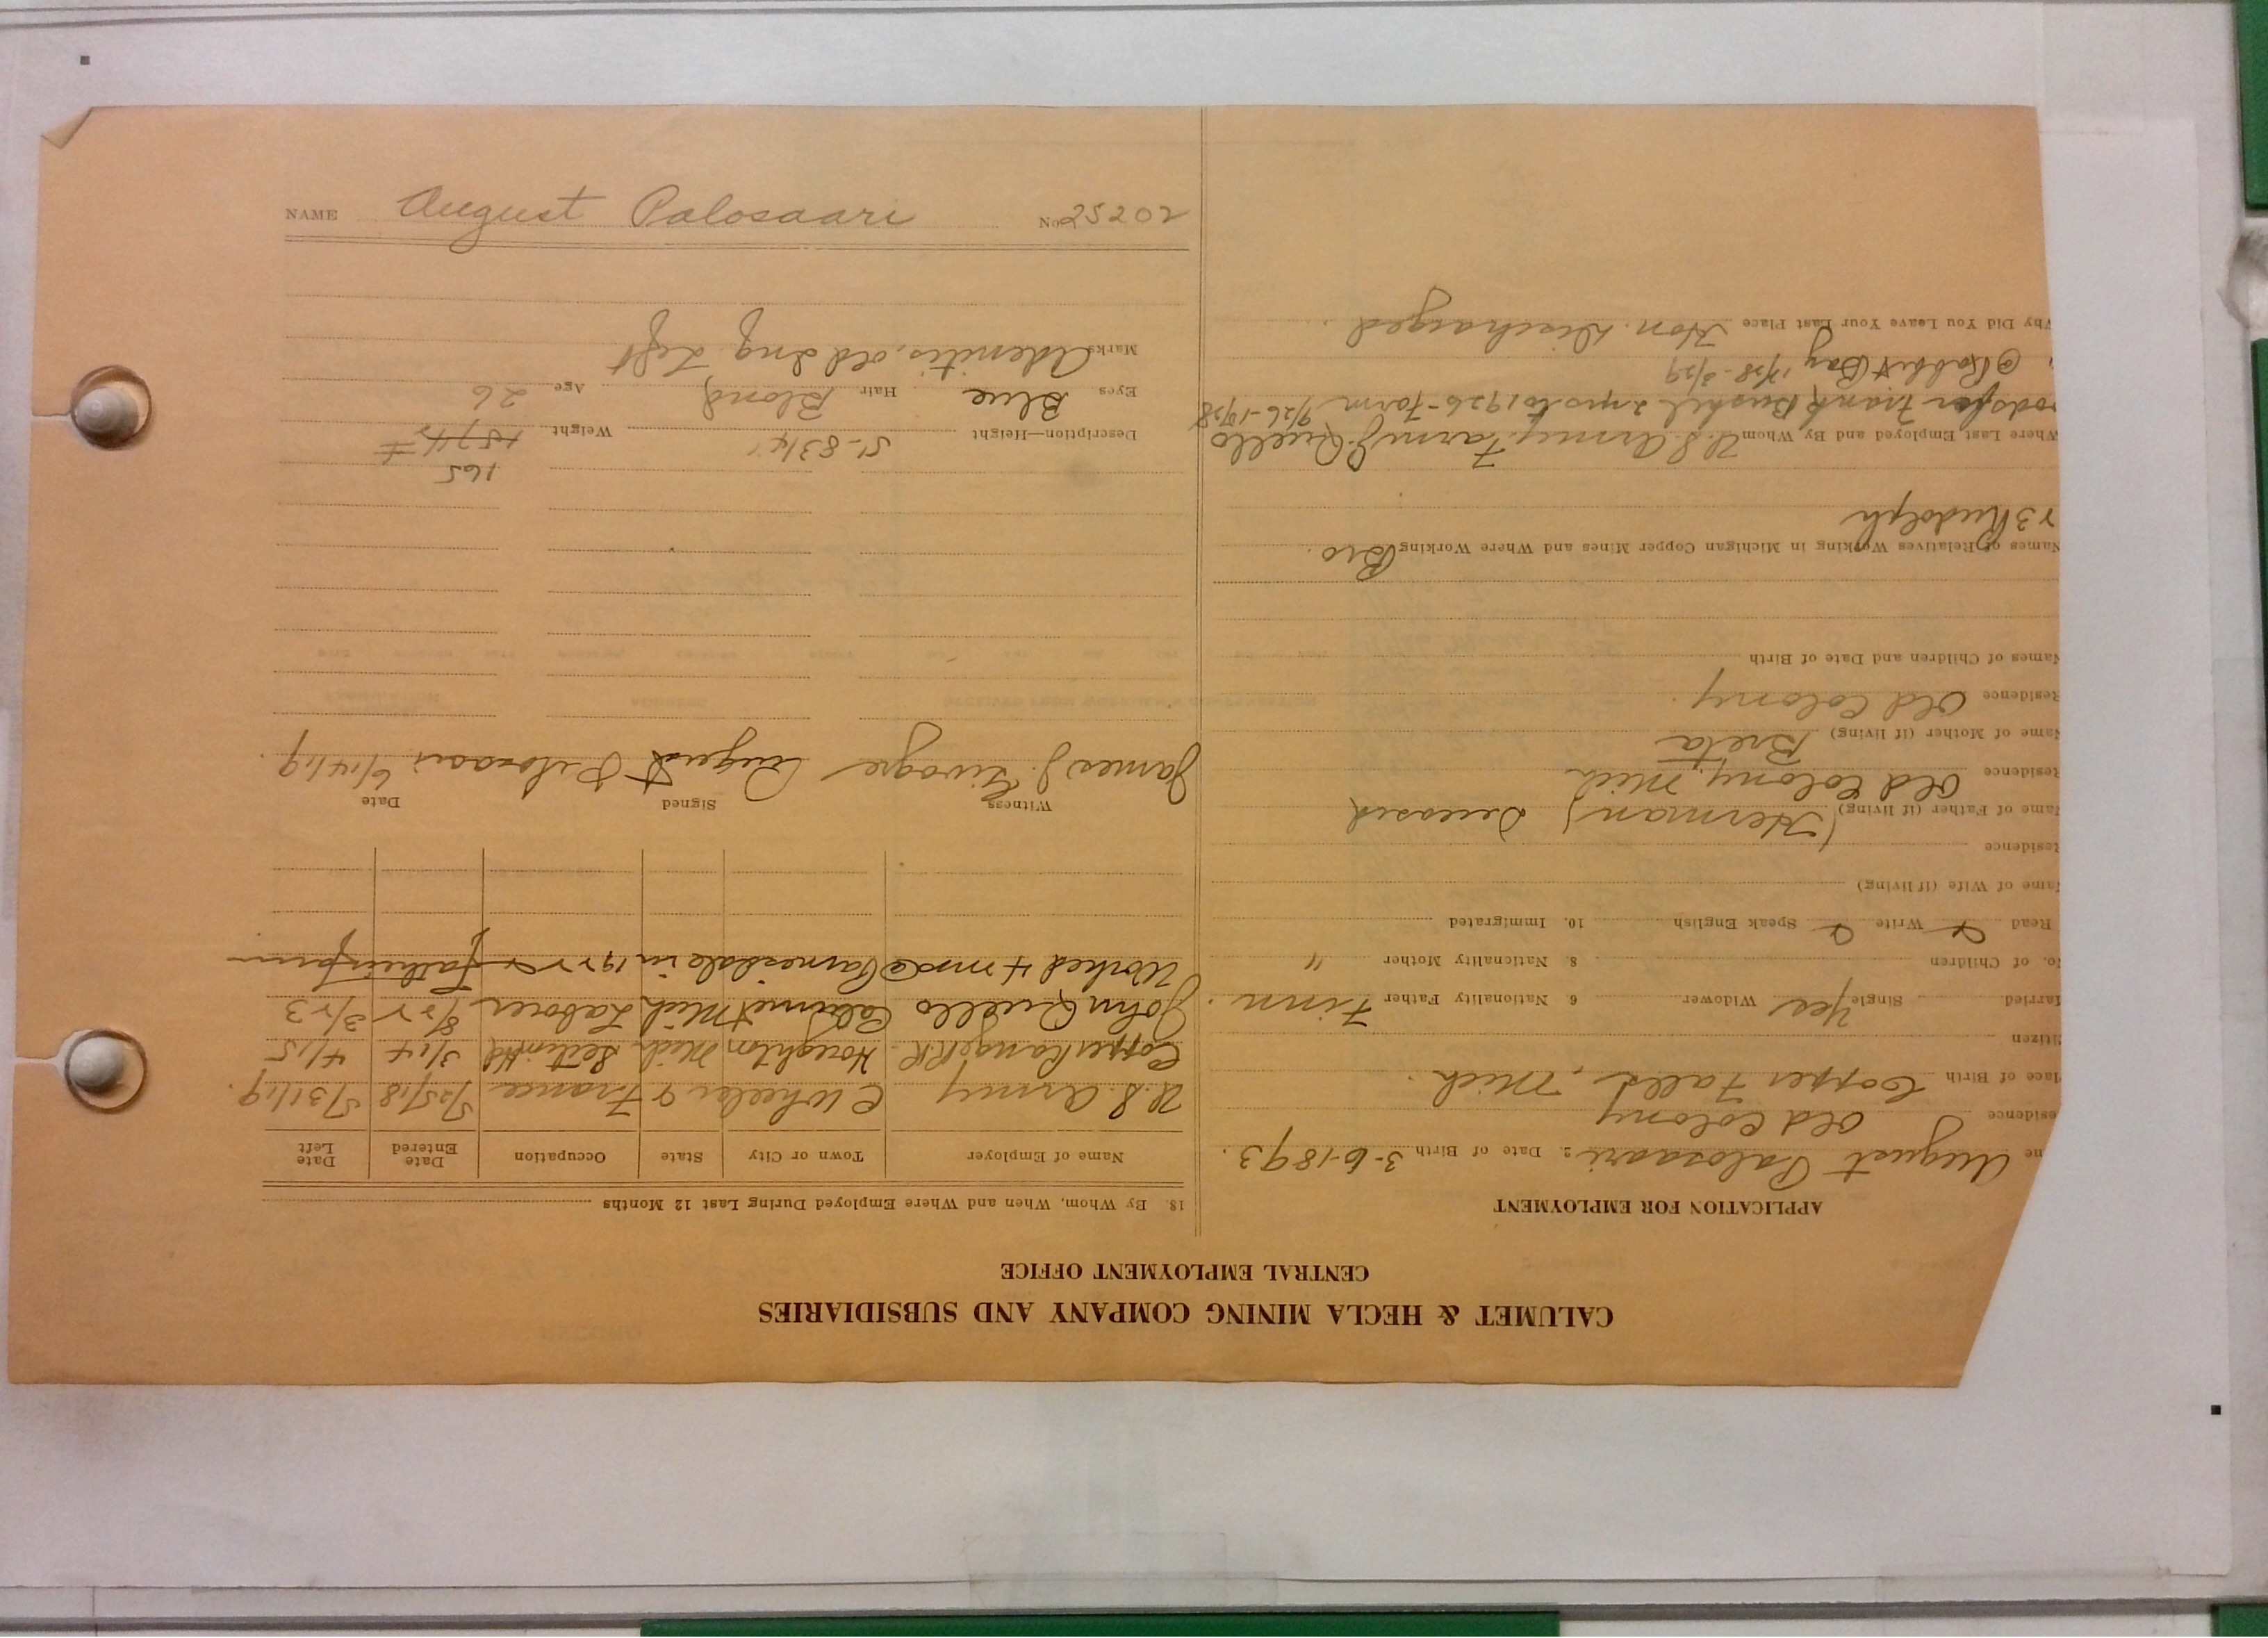 NAME August Palosaari No. 25202
CALUMET & HECLA MINING COMPANY AND SUBSIDIARIES
CENTRAL EMPLOYMENT OFFICE
APPLICATION FOR EMPLOYMENT
me August Palosaari 2. Date of Birth 3-6-1893.
esidence Old Colony
lace of Birth Copper Falls, Mich.
itizen
arried Single Yes Widower 6. Nationality Father Finn.
No. of Children 8. Nationality Mother "
Read Write Speak English 10. Immigrated
Name of Wife (if living)
Residence
Name of Father (if living) (Herman) Deceased
Residence Old Colony, Mich
Name of Mother (if living) Breta
Residence Old Colony.
Names of Children and Date of Birth
Names of Relatives Working in Michigan Copper Mines and Where Working Bro.
Rudolph
Where Last Employed and By Whom U.S. Army. Farm J. Ruello
ods for Frank Bushel 2 yrs to 1926 - Farm 9/26-
@ Rabbit Bay
Why Did You Leave Your Last Place Hon. Discharged.
18. By Whom, When and Where Employed During Last 12 Months
Name of Employer Town or City State Occupation Date Entered Date Left
U.S. Army C Wheeler & France 5/25/18 5/31/19.
Copper Range RR. Houghton Mich. 3/14 4/15
John Ruello Calumet Mich Laborer 8/22 3/23
Worked 4 mos @ in 1922 farm
Witness Signed Date
James J. August Palosaari 6/14/19.
165
Description—Height 5'-8 3/4" Weight 157 1/2
Eyes Blue Hair Blond Age 26
Marks Adenitis, old Ing. Left